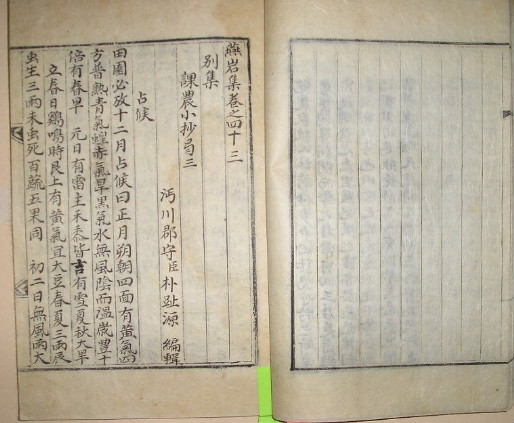 燕岩集卷之四十三
別集
課農小抄局三
沔川郡守臣 朴趾源 編輯
占候
田園必攷十二月占候曰正月朔朝四面有黃氣四
方普熱青氣蝗赤氣旱黑氣水無風陰而溫歲豊十
倍有春旱 元日有雷主禾黍皆吉有雪夏秋大旱
立春日鷄鳴時艮上有黃氣宜大豆春夏三兩
虫生三雨未虫死百蔬五果同 初二日無風雨大